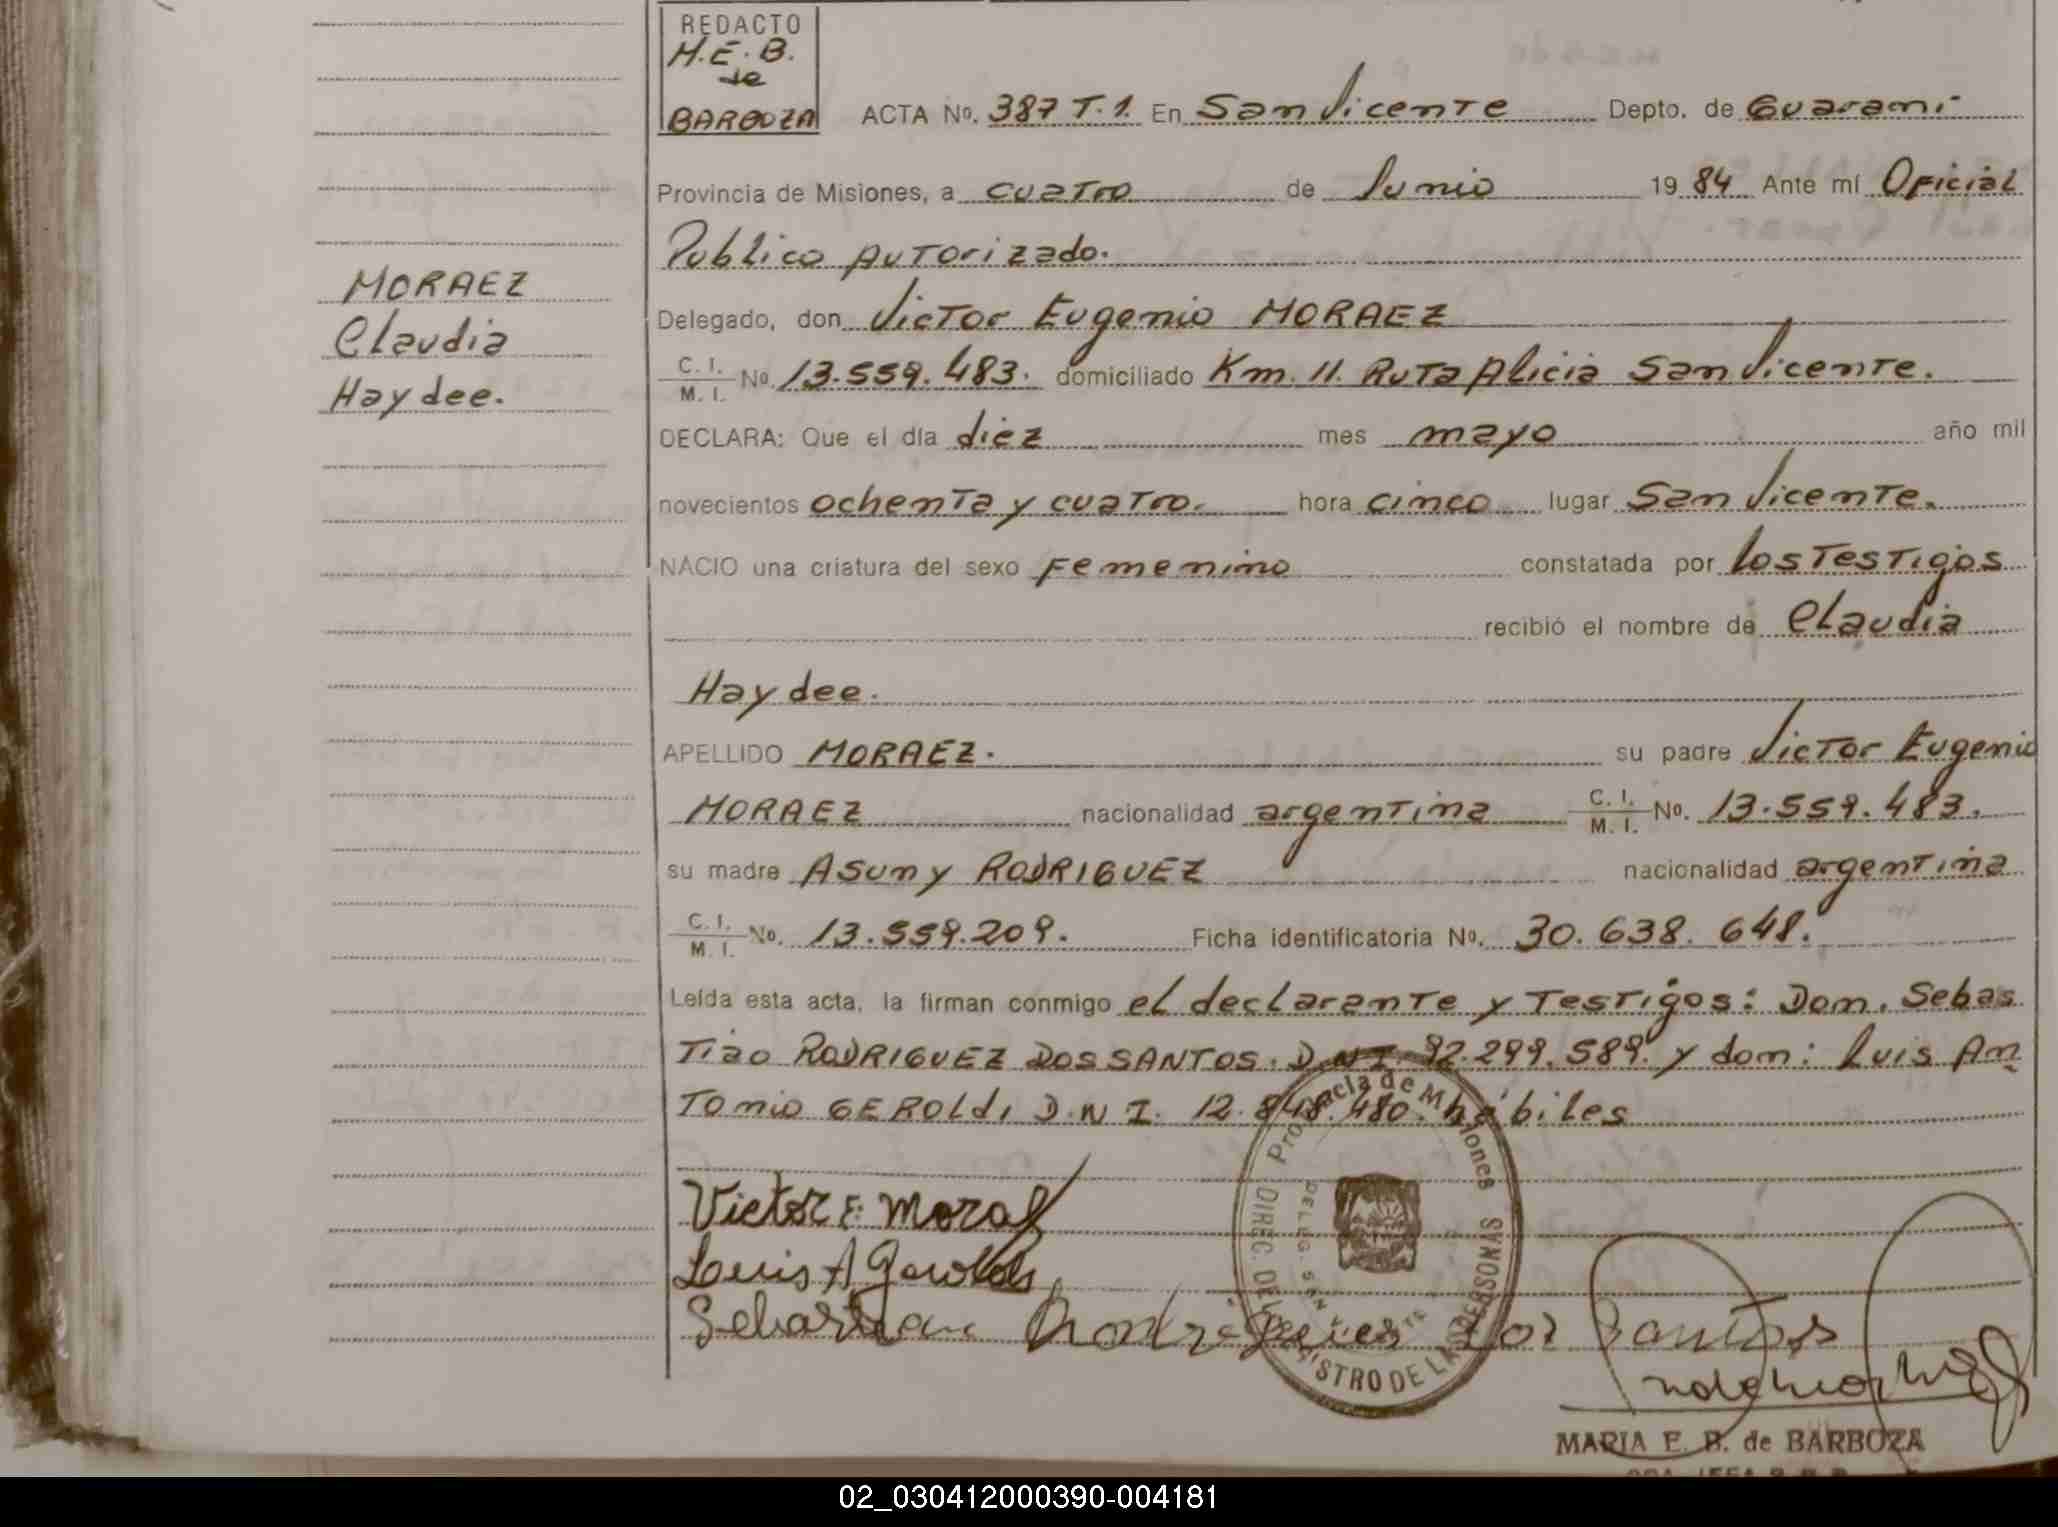 REDACTO
M.E.B.
de
BARBOZA
ACTA Nº. 387 T.1. En San Vicente Depto. de Guarani
Provincia de Misiones, a cuatro de Junio 19 84 Ante mí Oficial
Publico Autorizado.
MORAEZ
Claudia
Haydee.
Delegado, don Victor Eugenio MORAEZ
C. I.
M. I. Nº. 13.559.483. domiciliado Km. 11. Ruta Alicia San Vicente.
DECLARA: Que el día diez mes mayo año mil
novecientos ochenta y cuatro. hora cinco lugar San Vicente.
NACIO una criatura del sexo Femenino constatada por los Testigos
recibió el nombre de Claudia
Haydee.
APELLIDO MORAEZ. su padre Victor Eugenio
MORAEZ nacionalidad argentina C. I.
M. I. Nº. 13.559.483.
su madre Asuny RODRIGUEZ nacionalidad argentina
C. I.
M. I. Nº. 13.559.209. Ficha identificatoria Nº. 30.638.648.
Leída esta acta, la firman conmigo el declarante y Testigos: Don. Sebas
Tiao RODRIGUEZ DOS SANTOS. D.N.I. 92.299.589. y don: Luis An
Tonio GEROLdi D.N.I. 12.848.480. hábiles
Provincia de Misiones
DIREC. DEL REGISTRO DE LAS PERSONAS
DELEG. SAN VICENTE
Victor E. Moraez
Luis A Geroldi
Sebastian Rodrigues dos Santos
MARIA E. B. de BARBOZA
02_030412000390-004181